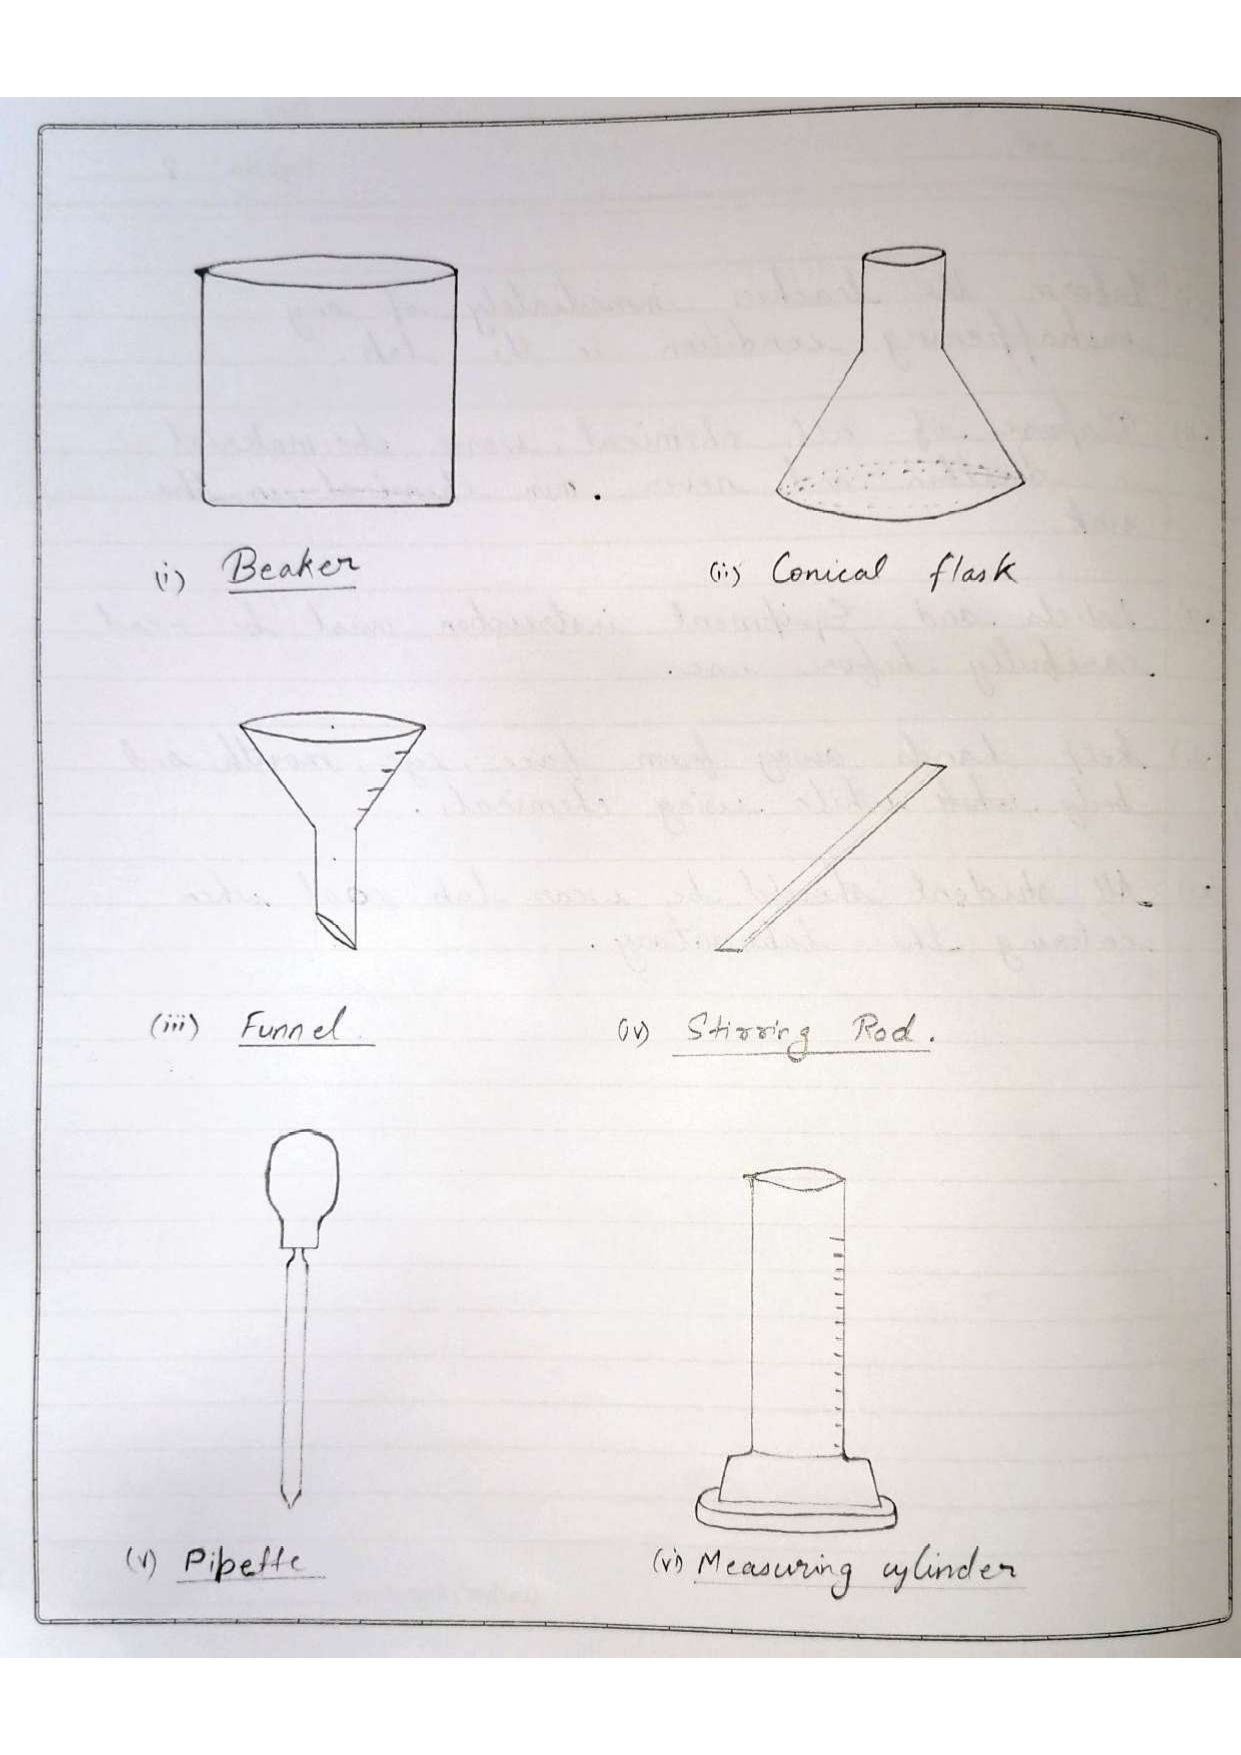 (i) Beaker
(ii) Conical flask
(iii) Funnel.
(iv) Stirring Rod.
(v) Pipette
(vi) Measuring cylinder